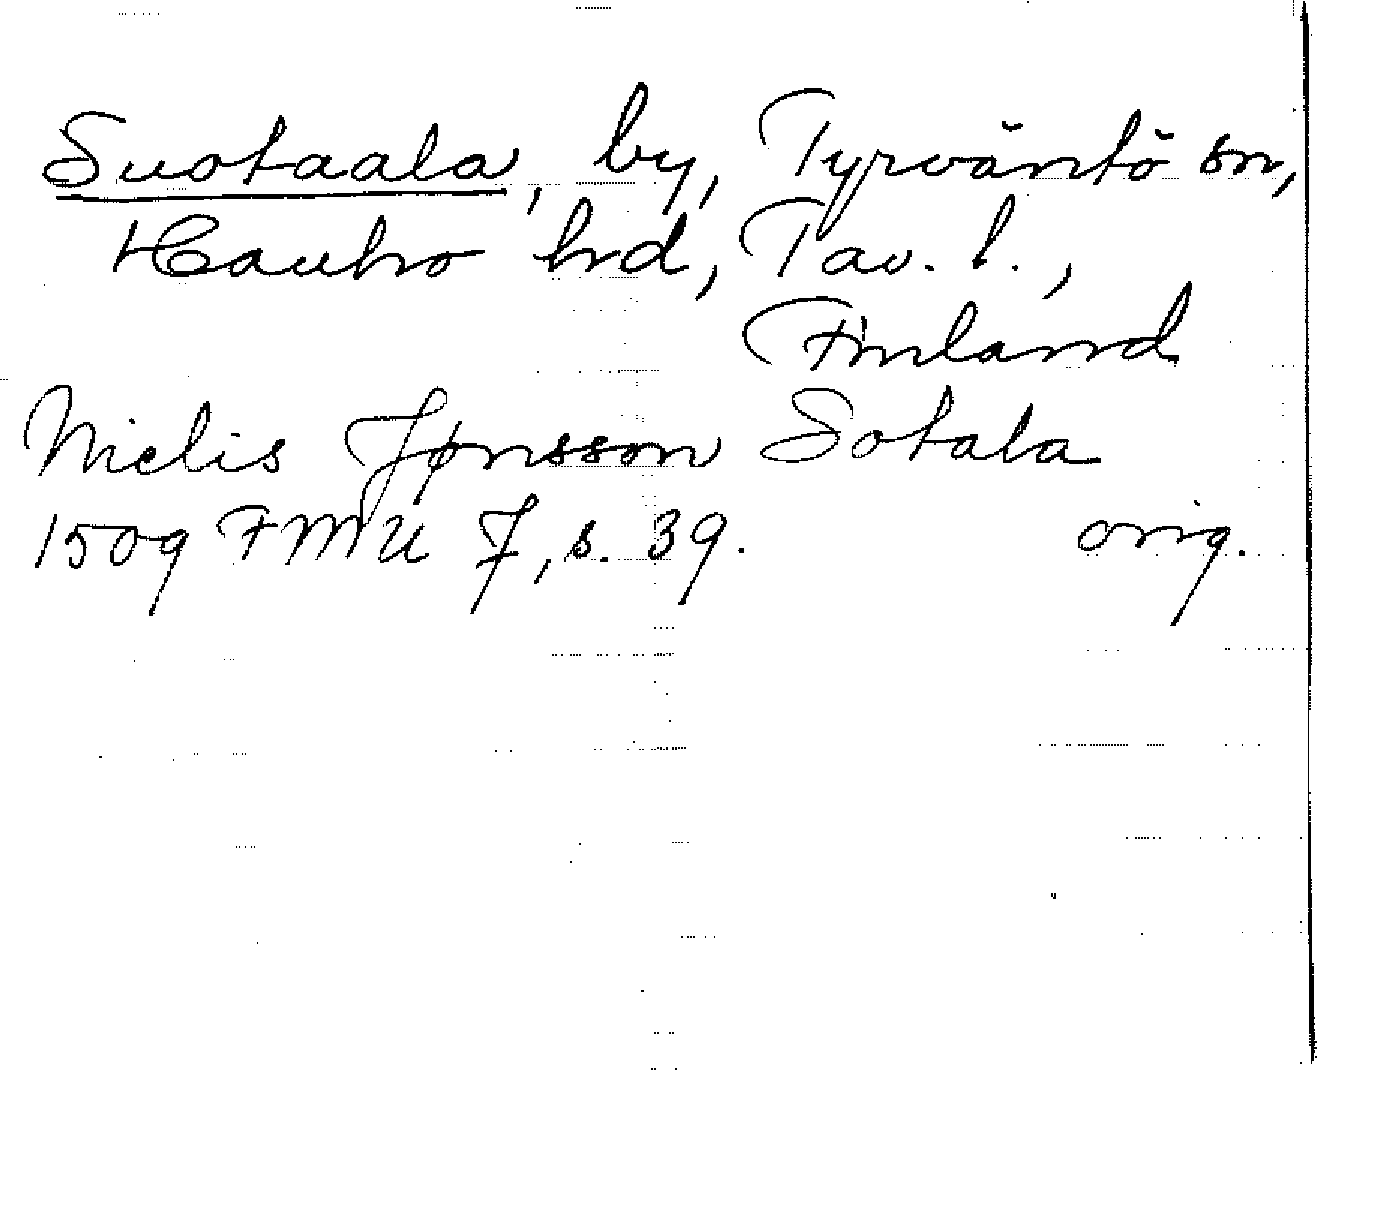 Suotaala, by, Tyrväntö sn,
Hauho hd, Tav. l.,
Finland
Nielis Jønsson Sotala
1509 FMU 7, s. 39. orig.